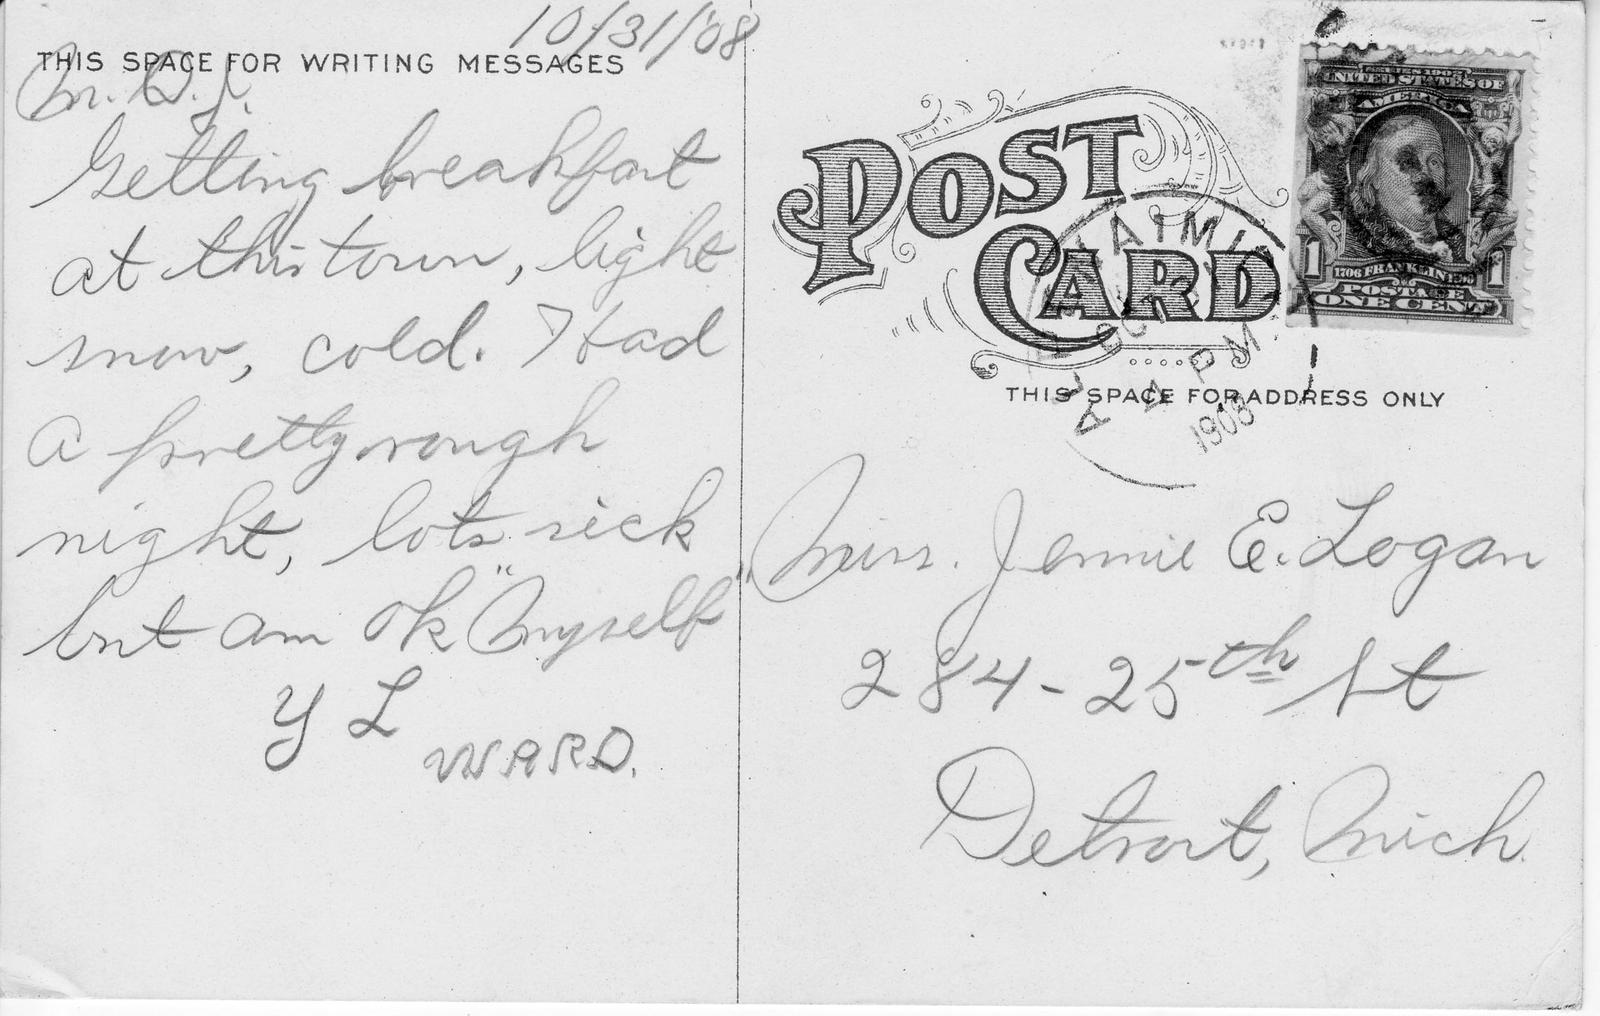 10/31/'08
THIS SPACE FOR WRITING MESSAGES
M. D. J.
Getting breakfast
at this town, light
snow, cold. I had
a pretty rough
night, lots sick
but am ok "Myself".
Y L
WARD.
POST
CARD
UNITED STATES OF
AMERICA
1 1
1706 FRANKLIN 1790
POSTAGE
ONE CENT
4 PM
1908
THIS SPACE FOR ADDRESS ONLY
Miss. Jennie E. Logan
284-25th St
Detroit, Mich.